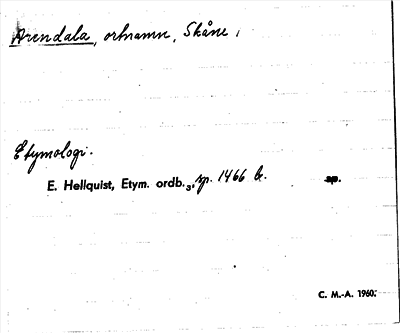 Arendala, ortnamn, Skåne.
Etymologi.
E. Hellquist, Etym. ordb.3, sp. 1466 b. sp.
C. M.-A. 1960.